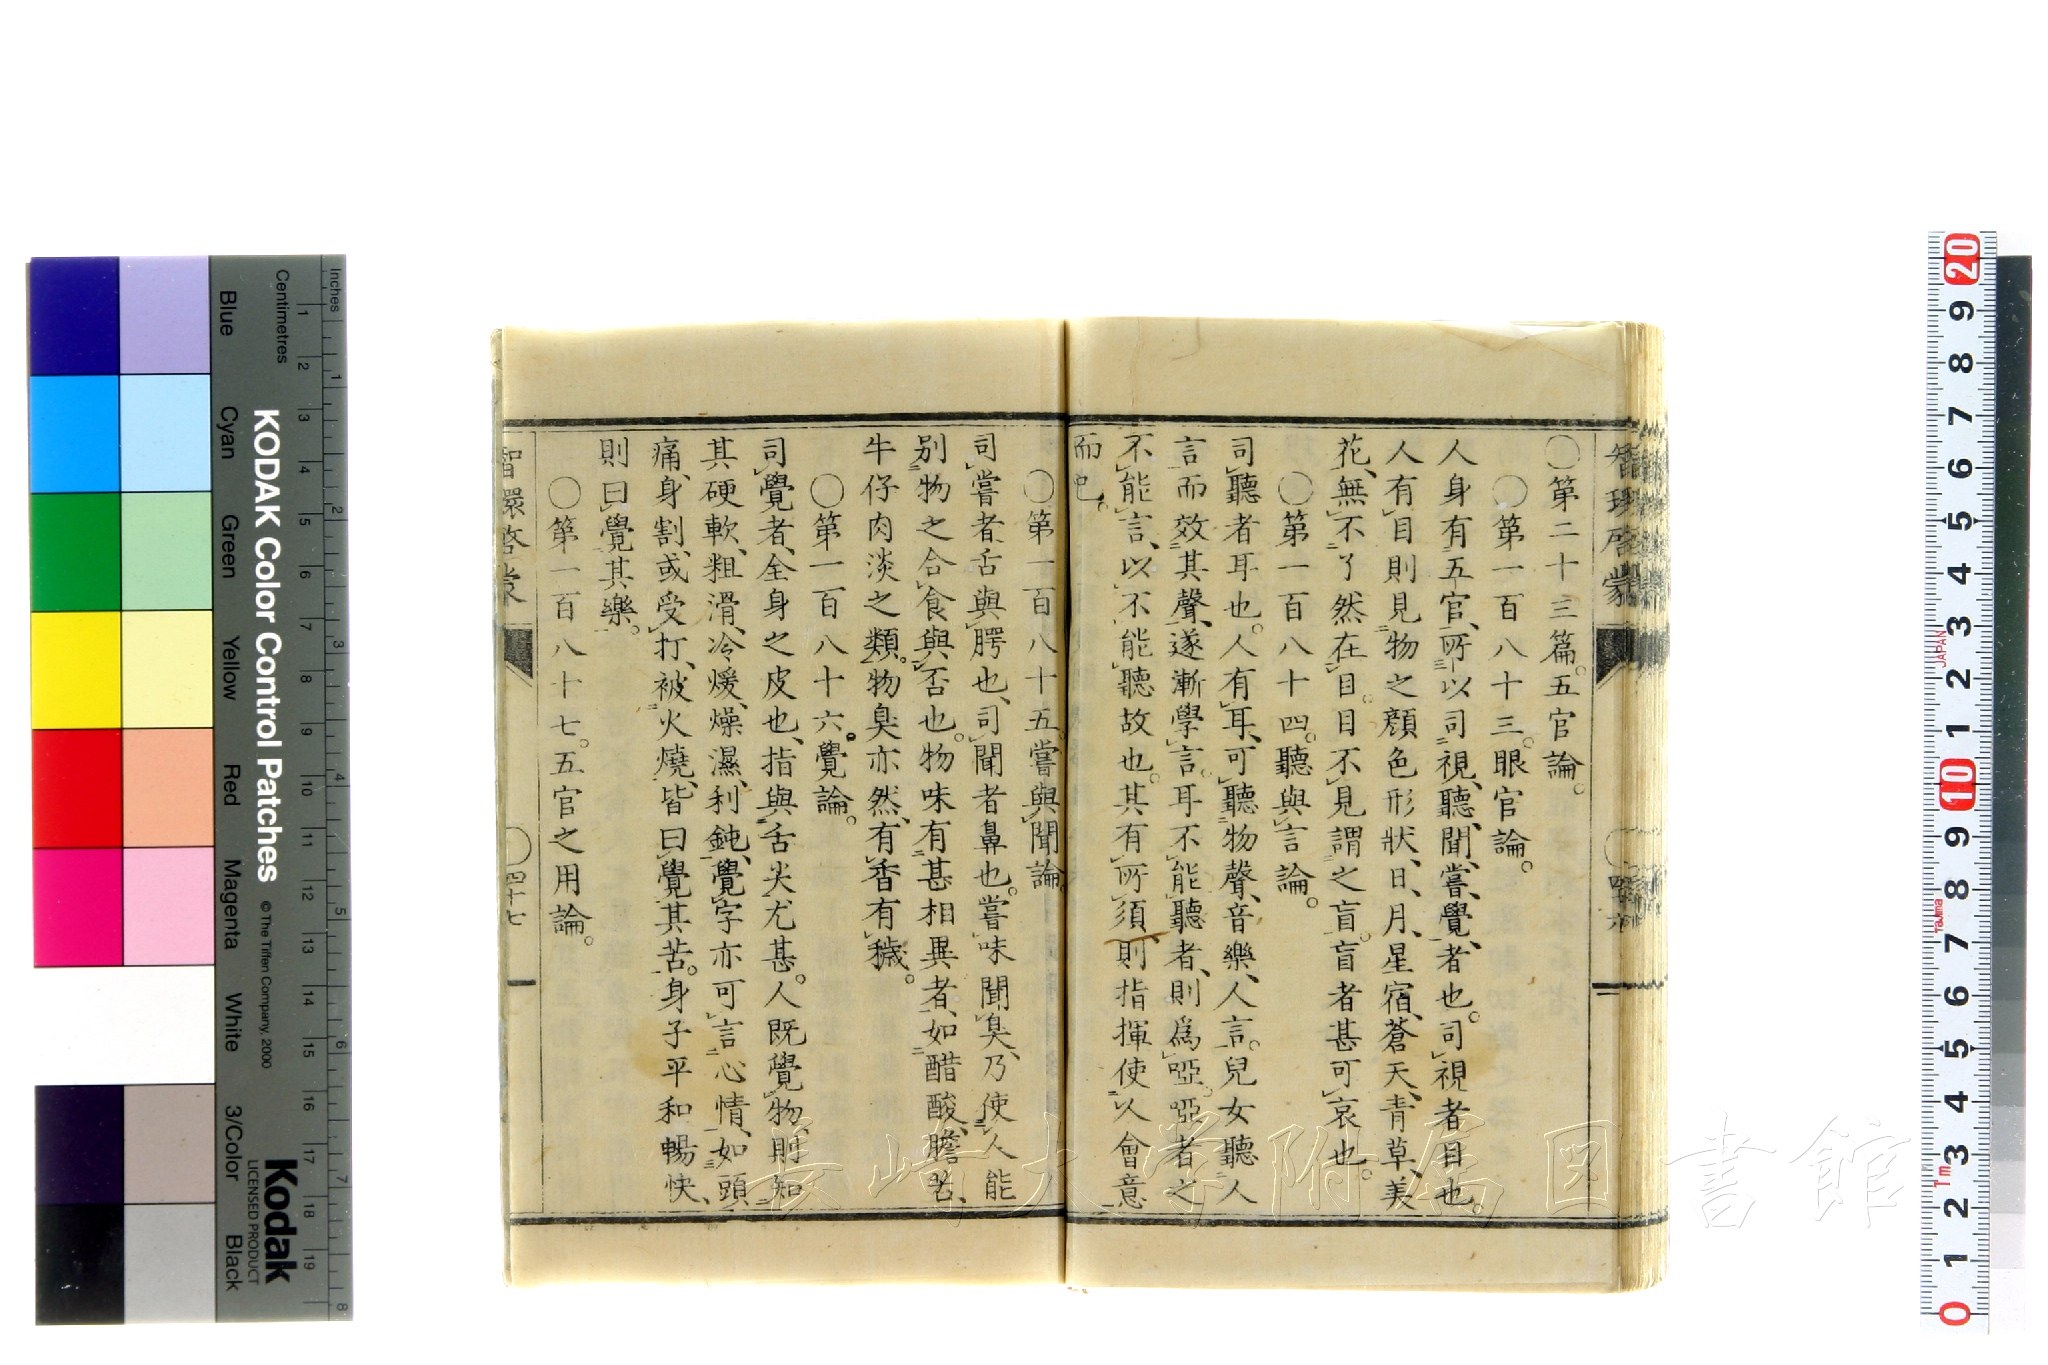 智環啓蒙
〇第二十三篇。五官論。
〇第一百八十三。眼官論。
人身有五官、所以司視、聽、聞、嘗、覺、者也。司視者目也。
人有目則見物之顏色形狀、日、月、星宿、蒼天、青草、美
花、無不了然在目。目不見謂之盲。盲者甚可哀也。
〇第一百八十四。聽與言論。
司聽者耳也。人有耳、可聽物聲、音樂、人言。兒女聽人
言而效其聲、遂漸學言。耳不能聽者、則爲啞。啞者之
不能言、以不能聽故也。其有所須、則指揮使以會意
而已。
〇第一百八十五。嘗與聞論。
司嘗者、舌與腭也、司聞者鼻也。嘗味聞臭、乃使人能
別物之合食與否也。物味有甚相異者、如醋酸、膽苦、
牛仔肉淡之類。物臭亦然、有香有穢。
〇第一百八十六。覺論。
司覺者、全身之皮也、指與舌尖尤甚。人既覺物、則知
其硬軟、粗滑、冷煖、燥濕、利鈍、覺字亦可言心情、如頭
痛、身割、或受打、被火燒、皆曰覺其苦。身子平和暢快、
則曰覺其樂。
〇第一百八十七。五官之用論。
智環啓蒙
〇四十七
長崎大学附属図書館
KODAK Color Control Patches
© The Tiffen Company, 2000
Kodak
LICENSED PRODUCT
Inches
Centimetres
Blue
Cyan
Green
Yellow
Red
Magenta
White
3/Color
Black
1 2 3 4 5 6 7 8 9 10 11 12 13 14 15 16 17 18 19
1 2 3 4 5 6 7 8
20
9
8
7
6
5
4
3
2
1
10
9
8
7
6
5
4
3
2
1
0
JAPAN
Tajima